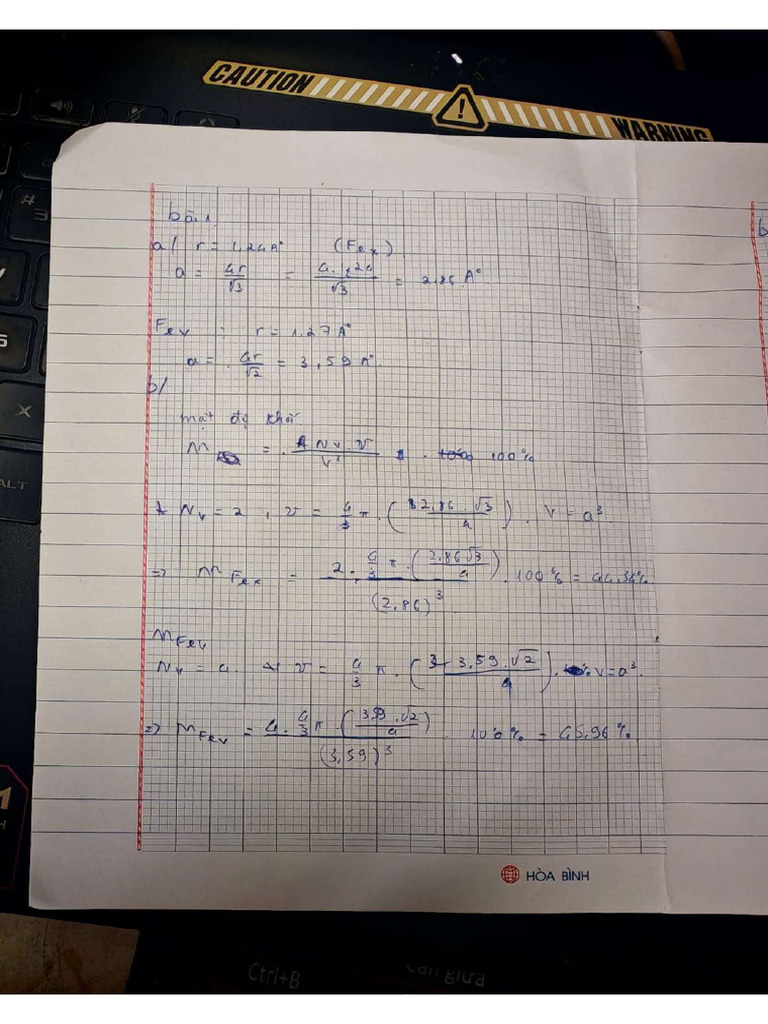 CAUTION
WARNING
bài 1.
a/ r = 1.24 A° (Fe α)
a = 4r/√3 = 4.1,24/√3 = 2.86 A°
Fe γ : r = 1.27 A°
a = 4r/√2 = 3,59 A°.
b/
mật độ khối
M = Nv . v / V . 100%
Nv = 2 , v = 4/3 π . (2,86.√3/4) . V = a³
=> M Fe α = 2. 4/3 π . (2,86√3/4) / (2.86)³ . 100% = 44.34%
M Fe γ
Nv = 4. v = 4/3 π . (3,59.√2/4). v = a³.
=> M Fe γ = 4. 4/3 π . (3,59.√2/4) / (3,59)³ . 100% = 45.96%
HÒA BÌNH
#
3
X
ALT
Ctrl+B
Căn giữa
b